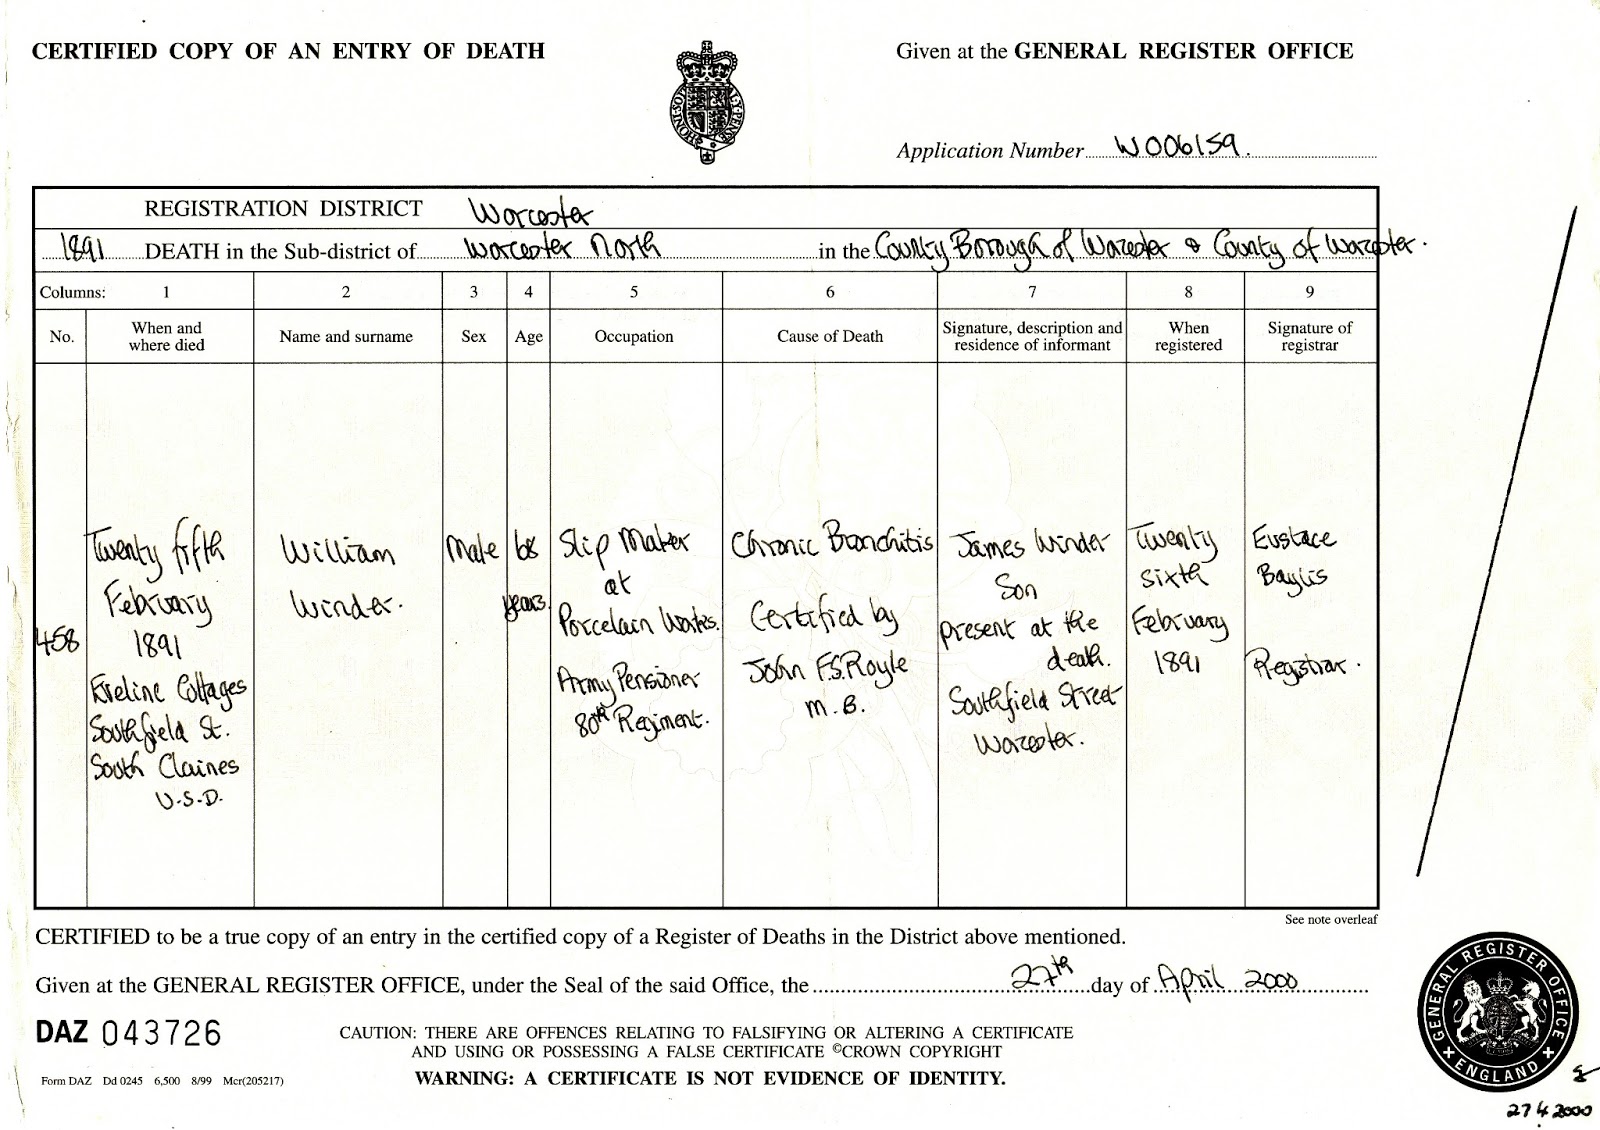 CERTIFIED COPY OF AN ENTRY OF DEATH
Given at the GENERAL REGISTER OFFICE
HONI·SOI
Application Number W006159.
REGISTRATION DISTRICT Worcester
1891 DEATH in the Sub-district of Worcester North in the County Borough of Worcester & County of Worcester.
Columns: 1 2 3 4 5 6 7 8 9
No.
When and
where died
Name and surname
Sex
Age
Occupation
Cause of Death
Signature, description and
residence of informant
When
registered
Signature of
registrar
458
Twenty fifth
February
1891
Eveline Cottages
Southfield St.
South Claines
U.S.D.
William
Winder.
Male
68
years
Slip Maker
at
Porcelain Works.
Army Pensioner
80th Regiment.
Chronic Bronchitis
Certified by
John F.S. Royle
M.B.
James Winder
Son
present at the
death.
Southfield Street
Worcester.
Twenty
sixth
February
1891
Eustace
Baylis
Registrar.
See note overleaf
CERTIFIED to be a true copy of an entry in the certified copy of a Register of Deaths in the District above mentioned.
Given at the GENERAL REGISTER OFFICE, under the Seal of the said Office, the 27th day of April 2000
DAZ 043726
CAUTION: THERE ARE OFFENCES RELATING TO FALSIFYING OR ALTERING A CERTIFICATE
AND USING OR POSSESSING A FALSE CERTIFICATE ©CROWN COPYRIGHT
WARNING: A CERTIFICATE IS NOT EVIDENCE OF IDENTITY.
Form DAZ Dd 0245 6,500 8/99 Mcr(205217)
GENERAL REGISTER OFFICE
ENGLAND
27 4 2000